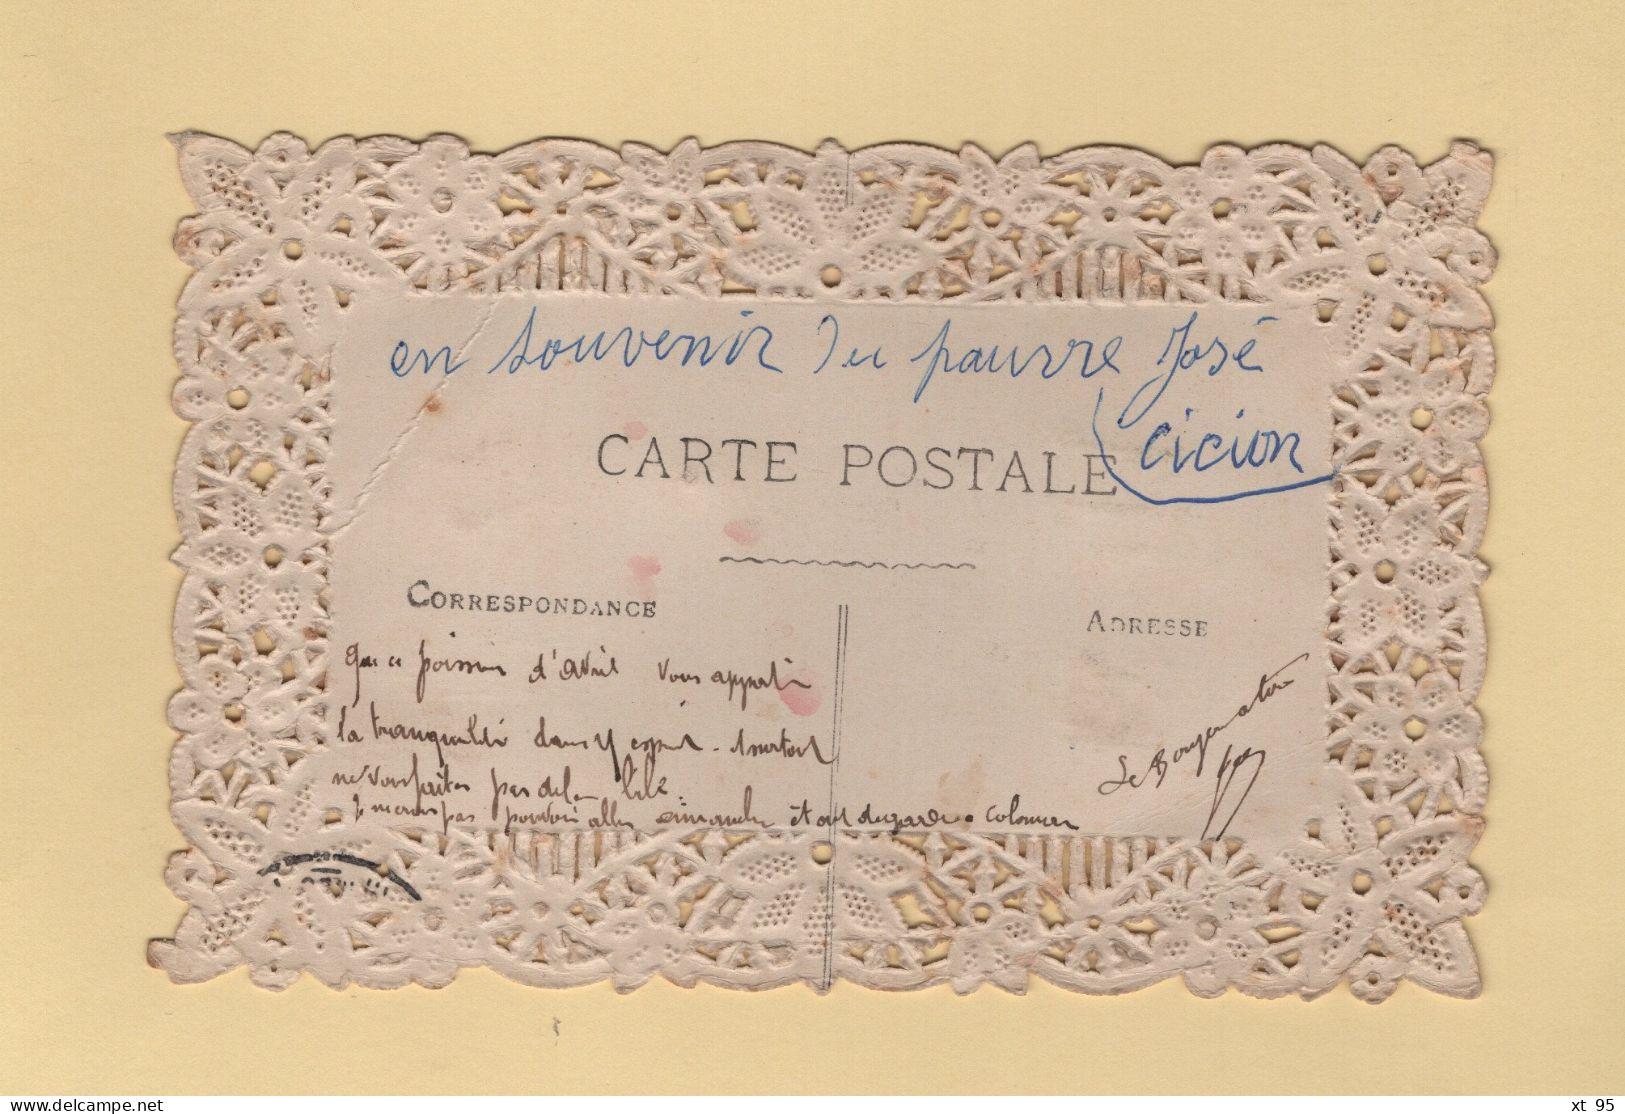 en souvenir du pauvre José
cicion
CARTE POSTALE
CORRESPONDANCE
ADRESSE
que ce poisson d'avril vous apporte
la tranquillité dans l'esprit. surtout
ne vous faites pas de la bile.
je ne crois pas pouvoir aller dimanche étant de garde a
Le
xt 95